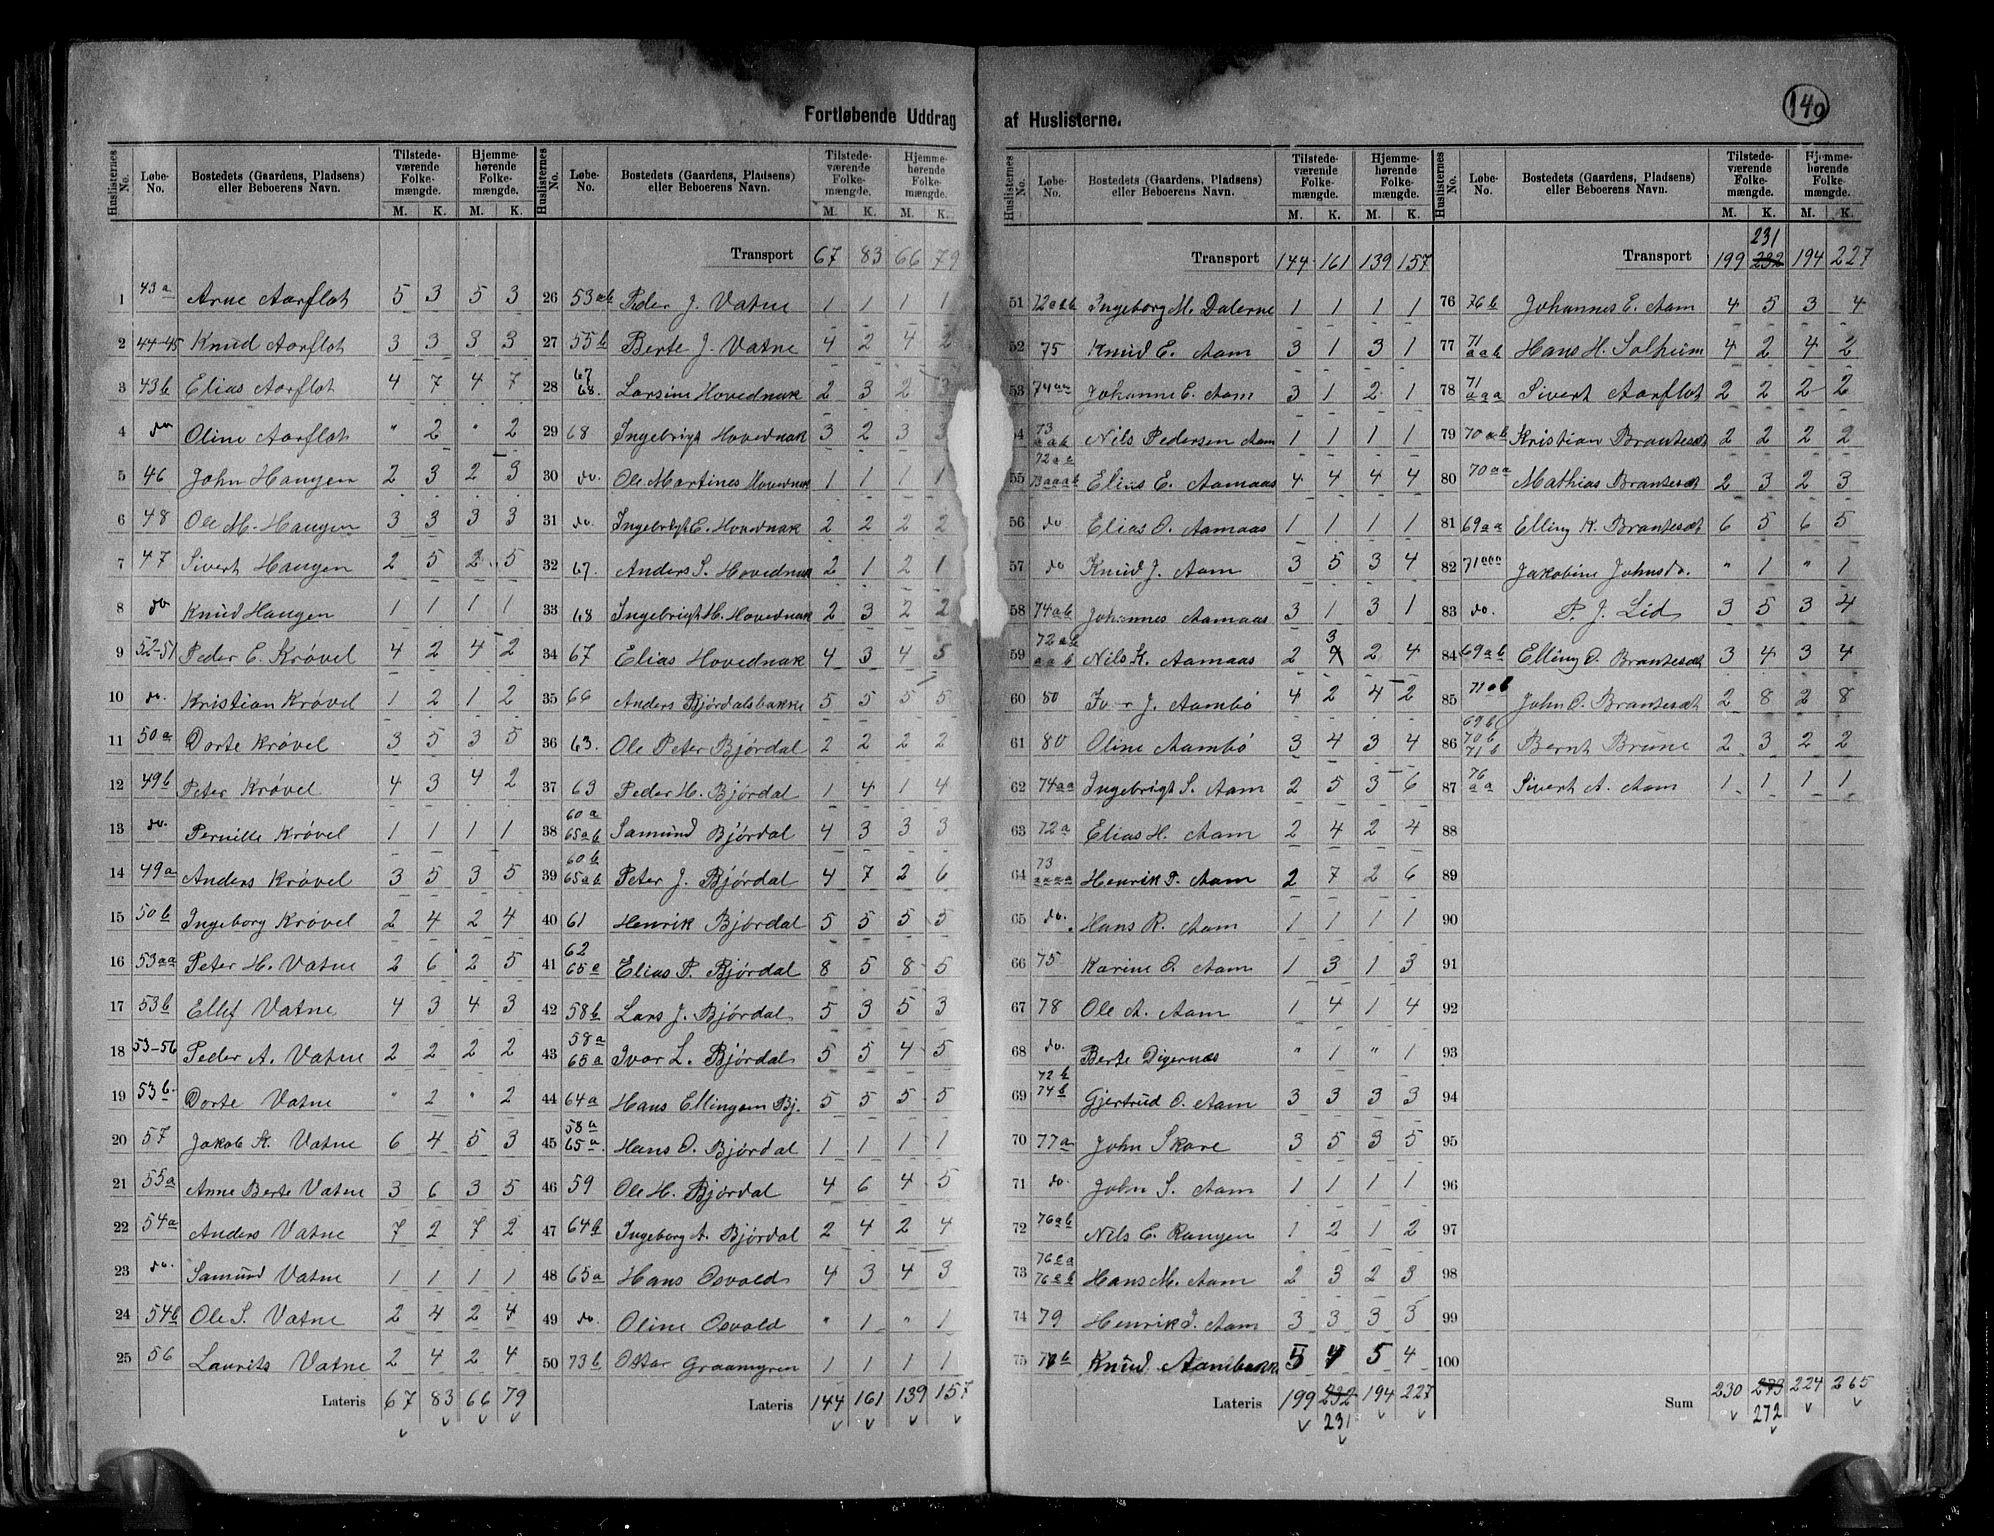 140
Fortløbende Uddrag af Huslisterne.
Huslisternes No. Løbe-No. Bostedets (Gaardens, Pladsens) eller Beboerens Navn. Tilstedeværende Folkemængde. M. K. Hjemmehørende Folkemængde. M. K.
1 43a Arne Aarflot 5 3 5 3
2 44-45 Knud Aarflot 3 3 3 3
3 43b Elias Aarflot 4 7 4 7
4 do Oline Aarflot " 2 " 2
5 46 John Haugen 2 3 2 3
6 48 Ole M. Haugen 3 3 3 3
7 47 Sivert Haugen 2 5 2 5
8 do Knud Haugen 1 1 1 1
9 52-51 Peder E. Krøvel 4 2 4 2
10 do. Kristian Krøvel 1 2 1 2
11 50a Dorte Krøvel 3 5 3 5
12 49b Peter Krøvel 4 3 4 2
13 do. Pernille Krøvel 1 1 1 1
14 49a Anders Krøvel 3 5 3 5
15 50b Ingeborg Krøvel 2 4 2 4
16 53aa Peter H. Vatne 2 6 2 5
17 53b Ellef Vatne 4 3 4 3
18 53-56 Peder A. Vatne 2 2 2 2
19 53b. Dorte Vatne " 2 " 2
20 57 Jakob K. Vatne 6 4 5 3
21 55a Anne Berte Vatne 3 6 3 5
22 54a Anders Vatne 7 2 7 2
23 do. Samund Vatne 1 1 1 1
24 54b Ole S. Vatne 2 4 2 4
25 56 Laurits Vatne 2 4 2 4
Lateris 67 83 66 79
Huslisternes No. Løbe-No. Bostedets (Gaardens, Pladsens) eller Beboerens Navn. Tilstedeværende Folkemængde. M. K. Hjemmehørende Folkemængde. M. K.
Transport 67 83 66 79
26 53ab Peder J. Vatne 1 1 1 1
27 55b Berte J. Vatne 4 2 4 2
28 67 68. Larsine Hovednak 2 3 2 3
29 68 Ingebrigt Hovednak 3 2 3 3
30 do. Ole Martines Hovednak 1 1 1 1
31 do. Ingebrigt E. Hovednak 2 2 2 2
32 67. Anders S. Hovednak 2 1 2 1
33 68 Ingebrigt H. Hovednak 2 3 2 2
34 67 Elias Hovednak 4 3 4 5
35 66 Anders Bjørdalsbakke 5 5 5 5
36 63. Ole Peter Bjørdal 2 2 2 2
37 63 Peder H. Bjørdal 1 4 1 4
38 60a 65ab Samund Bjørdal 4 3 3 3
39 60b 65ab Peter J. Bjørdal 4 7 2 6
40 61 Henrik Bjørdal 5 5 5 5
41 62 65a Elias P. Bjørdal 8 5 8 5
42 58b Lars J. Bjørdal 5 3 5 3
43 58a 65a Ivar L. Bjørdal 5 5 4 5
44 64a Hans Ellingsen Bj. 5 5 5 5
45 58a 65a. Hans O. Bjørdal 1 1 1 1
46 59 Ole H. Bjørdal 4 6 4 5
47 64b Ingeborg A. Bjørdal 2 4 2 4
48 65a Hans Osvold 4 3 4 3
49 do. Oline Osvold " 1 " 1
50 73b Ottar Graamyren 1 1 1 1
Lateris 144 161 139 157
Huslisternes No. Løbe-No. Bostedets (Gaardens, Pladsens) eller Beboerens Navn. Tilstedeværende Folkemængde. M. K. Hjemmehørende Folkemængde. M. K.
Transport 144 161 139 157
51 72aab Ingeborg M. Dalerne 1 1 1 1
52 75 Knud E. Aam 3 1 3 1
53 74aa Johanne E. Aam 3 1 2 1
54 73 aab Nils Pedersen Aam 1 1 1 1
55 72aa 73aaab Elias E. Aamaas 4 4 4 4
56 do Elias O. Aamaas 1 1 1 1
57 do Knud J. Aam 3 5 3 4
58 74ab Johannes Aamaas 3 1 3 1
59 72ab aab Nils K. Aamaas 2 3 2 4
60 80 Ivar J. Aambø 4 2 4 2
61 80 Oline Aambø 3 4 3 4
62 74aa Ingebrigt S. Aam 2 5 3 6
63 72a Elias H. Aam 2 4 2 4
64 73 aaaa Henrik P. Aam 2 7 2 6
65 do. Hans R. Aam 1 1 1 1
66 75 Karine O. Aam 1 3 1 3
67 78 Ole A. Aam 1 4 1 4
68 do. Berte Digernæs " 1 " 1
69 72b 74b Gjertrud O. Aam 3 3 3 3
70 77a John Skare 3 5 3 5
71 do. John S. Aam 1 1 1 1
72 76ab Nils E. Rangen 1 2 1 2
73 Hans M. Aam 2 3 2 3
74 79 Henrik J. Aam 3 3 3 3
75 77b Knud Aambakk 5 4 5 4
Lateris 199 232 194 227
231
Huslisternes No. Løbe-No. Bostedets (Gaardens, Pladsens) eller Beboerens Navn. Tilstedeværende Folkemængde. M. K. Hjemmehørende Folkemængde. M. K.
231
Transport 199 232 194 227
76 76b Johannes E. Aam 4 5 3 4
77 71 aab Hans H. Solheim 4 2 4 2
78 71 aaa Sivert Aarflot 2 2 2 2
79 70ab Kristian Brautesæt 2 2 2 2
80 70aa Mathias Brautesæt 2 3 2 3
81 69aa Elling K. Brautesæt 6 5 6 5
82 71aaa Jakobine Johnsdr. " 1 " 1
83 do. P. J. Lid 3 5 3 4
84 69ab Elling O. Brautesæt 3 4 3 4
85 71ab John O. Brautesæt 2 8 2 8
86 69b 70b 71b Bernt Brune 2 3 2 2
87 76 aa Sivert A. Aam 1 1 1 1
88
89
90
91
92
93
94
95
96
97
98
99
100
Sum 230 273 224 265
272